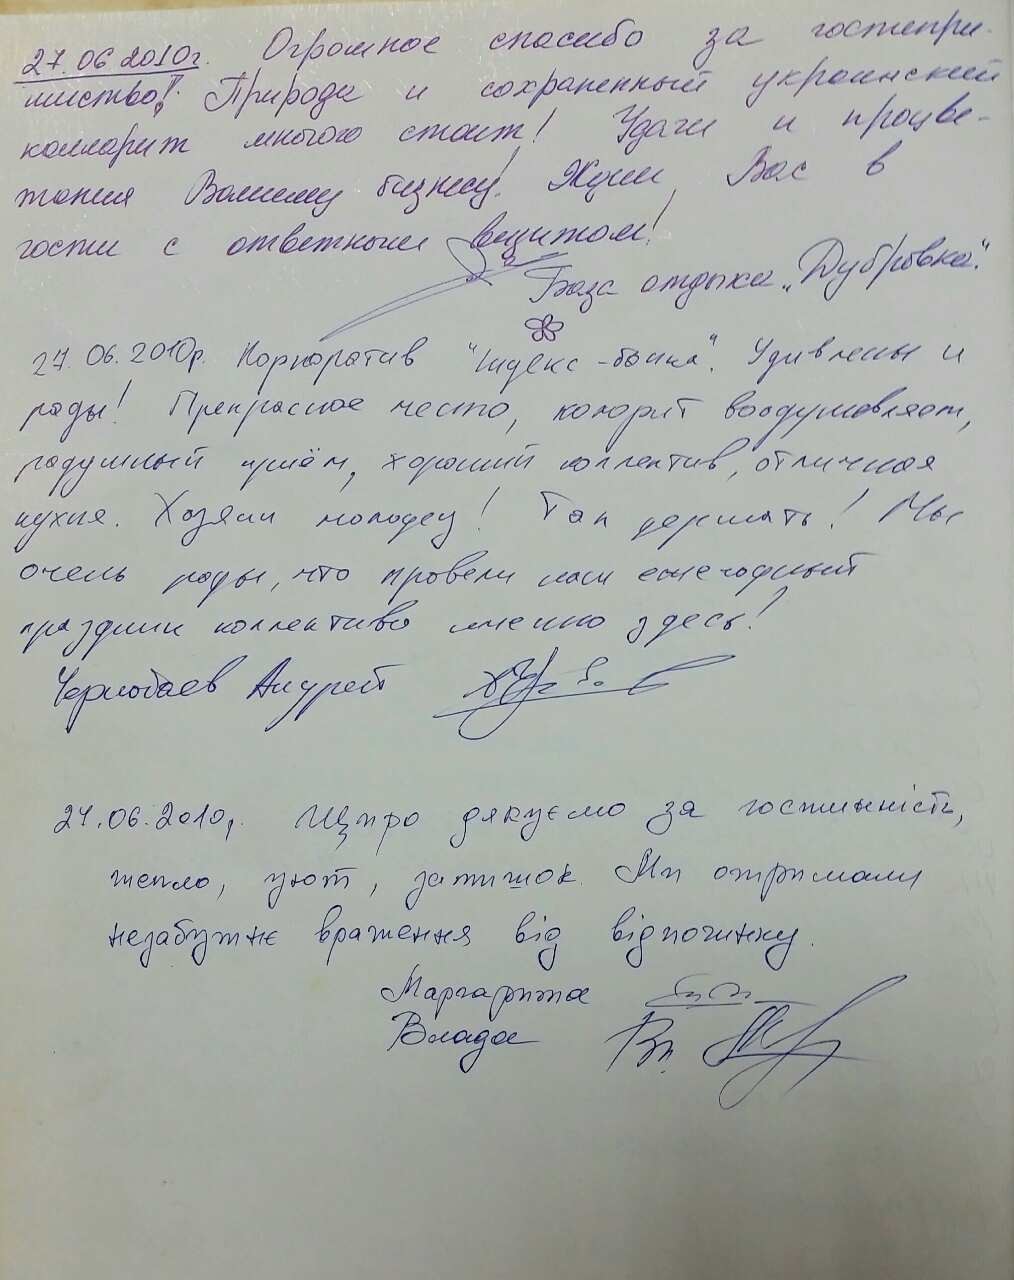 27.06 2010г. Огромное спасибо за гостепри-
имство! Природа и сохраненный украинский
колларит много стоит! Удачи и процве-
тания Вашему бизнесу! Ждем Вас в
гости с ответным визитом!
База отдыха „Дубровка".
27.06.2010р. Корпоратив "Індекс-банка". Удивлены и
рады! Прекрасное место, колорит воодушевляет,
радушный приём, хороший коллектив, отличная
кухня. Хозяин молодец! Так держать! Мы
очень рады, что провели наш ежегодный
праздник коллектива именно здесь!
Чернобаев Андрей
27.06.2010р. Щиро дякуємо за гостинність,
тепло, уют, затишок. Ми отримали
незабутнє враження від відпочинку.
Маргарита
Влада Вл.